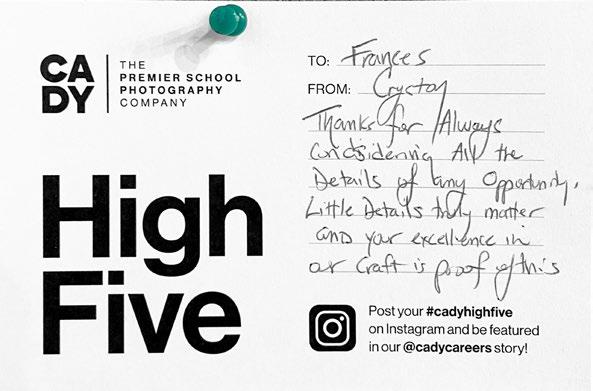 CA
DY
THE
PREMIER SCHOOL
PHOTOGRAPHY
COMPANY
High
Five
TO: Frances
FROM: Crystal
Thanks for Always
considering All the
Details of any Opportunity.
Little Details truly matter
and your excellence in
our Craft is proof of this
Post your #cadyhighfive
on Instagram and be featured
in our @cadycareers story!